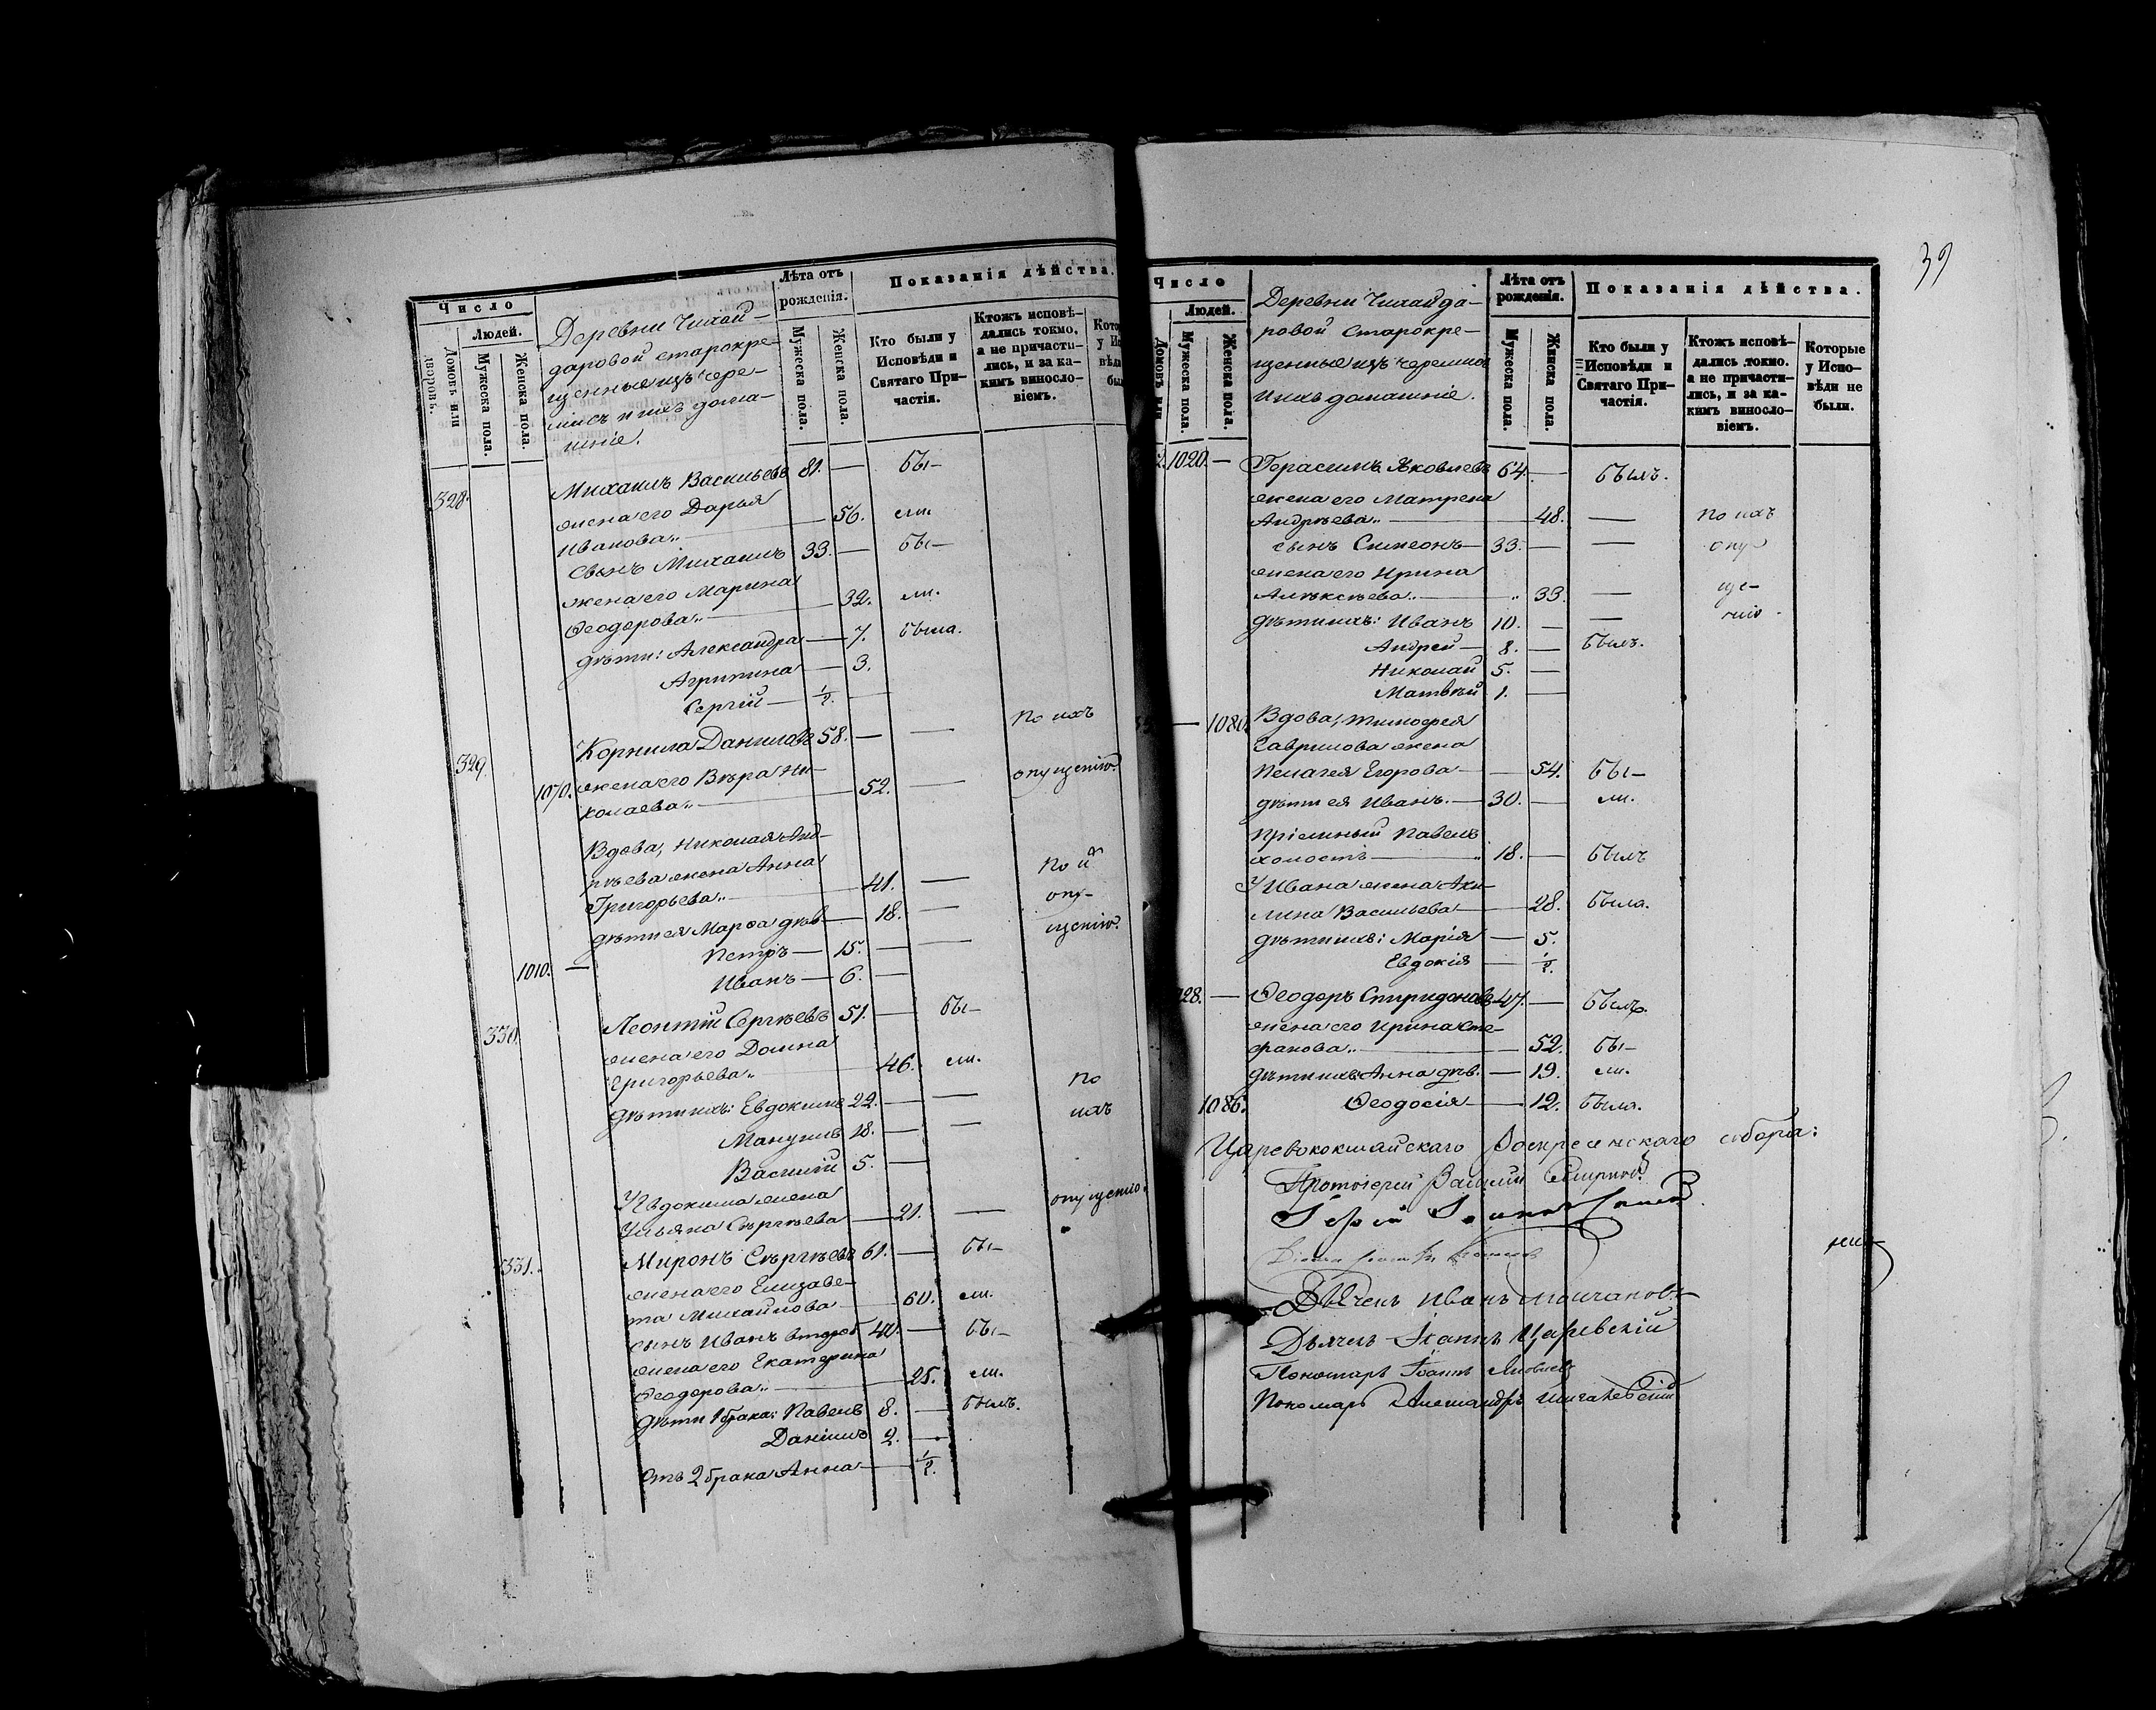 Число
Людей.
Домовъ или дворовъ.
Мужеска пола.
Женска пола.
Деревни Чихай-
даровой старокре-
щенные изъ чере-
мисъ и ихъ дома-
шніе.
Лѣта отъ
рожденія.
Мужеска пола.
Женска пола.
Показанія дѣйства.
Кто были у
Исповѣди и
Святаго При-
частія.
Ктожъ исповѣ-
дались токмо,
а не причасти-
лись, и за ка-
кимъ винosло-
віемъ.
328. Михаилъ Васильевъ 81. — бы-
жена его Дарья
Иванова „ — 56. ли.
сынъ Михаилъ 33. — бы-
жена его Марина
Ѳеодорова „ — 32. ли.
дѣти: Александра — 7. была.
Агрипина — 3.
Сергій — 1/2. —
329. Корнила Даниловъ 58. — — по ихъ
1070. жена его Вѣра Ни-
колаева „ — 52. — опущенію.
Вдова, Николая Анд-
рѣева жена Анна
Григорьева „ — 41. — по их
дѣти ея Марѳа дѣв. — 18. — опу-
Петръ — 15. — — щенію.
1010. — Иванъ — 6. —
330. Леонтій Сергѣевъ 51. — бы-
жена его Домна
Григорьева „ 46. ли.
дѣти ихъ: Евдокимъ 22. — — по
Мануилъ 18. — — ихъ
Василій 5. —
У Евдокима жена
Ульяна Сергѣева — 21. — опущенію.
331. Миронъ Сергѣевъ 61. — бы-
жена его Елизаве-
та Михайлова — 60. ли.
сынъ Иванъ второб. 40. — бы-
жена его Екатерина
Ѳеодорова „ — 25. ли.
дѣти 1 брака: Павелъ 8. — былъ.
Даніилъ 2. —
отъ 2 брака Анна — 1/2.
39
Число
Людей.
Домовъ или
Мужеска пола.
Женска пола.
Деревни Чихайда-
ровой старокре-
щенные изъ черемисъ
и ихъ домашніе.
Лѣта отъ
рожденія.
Мужеска пола.
Женска пола.
Показанія дѣйства.
Кто были у
Исповѣди и
Святаго При-
частія.
Ктожъ исповѣ-
дались токмо.
а не причасти-
лись, и за ка-
кимъ винosло-
віемъ.
Которые
у Испо-
вѣди не
были.
1020. — Герасимъ Яковлевъ 64. — былъ.
жена его Матрена
Андрѣева „ — 48. — по ихъ
сынъ Симеонъ — 33. — — опу-
жена его Ирина
Алексѣева „ — „ 33. — ще-
дѣти ихъ: Иванъ 10. — — нію.
Андрей — 8. — былъ.
Николай 5. —
Матвѣй 1. —
— 1080. Вдова, Тимофея
Гаврилова жена
Пелагея Егорова — — 54. бы-
дѣти ея Иванъ. — 30. — ли.
Пріемный Павелъ
холостъ — „ 18. — былъ
У Ивана жена Аку-
лина Васильева — 28. была.
дѣти ихъ: Марія — 5.
Евдокія — 1/2.
28. — Ѳеодоръ Спиридоновъ 47. — былъ.
жена его Ирина Сте-
фанова „ — 52. бы-
дѣти ихъ: Анна дѣв. — 19. ли.
1086. Ѳеодосія — 12. была.
Царевококшайскаго Воскресенскаго собора:
Протоіерей Василій Смирнов
Дьячекъ Иванъ Молчанов
Дьячекъ Іоаннъ Царевскій
Пономарь Іоаннъ
Пономарь Александръ